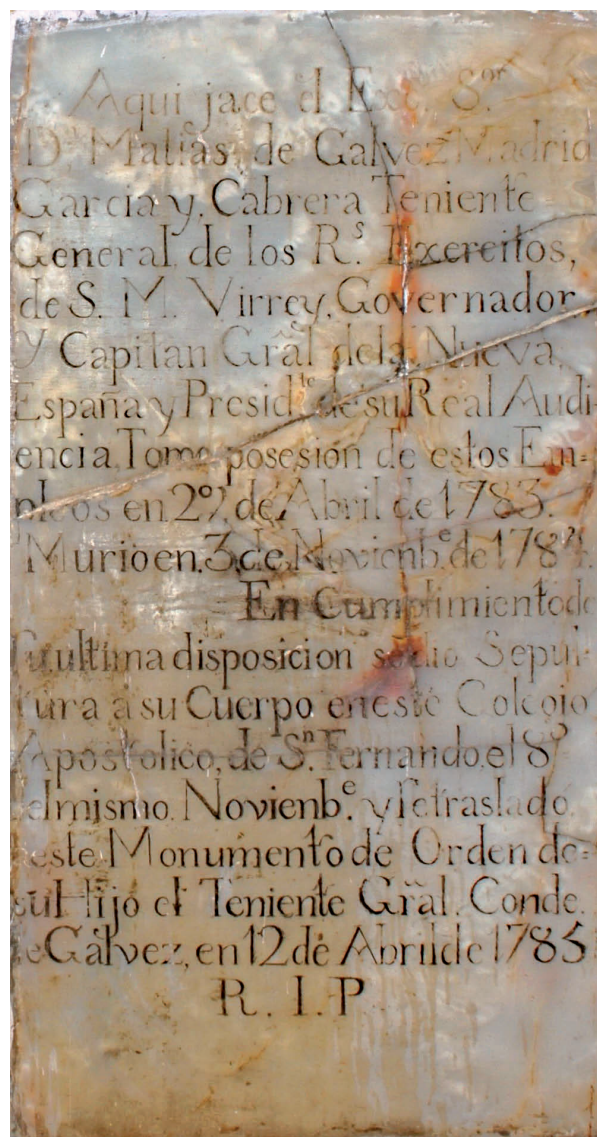 Aqui jace el Exc. Sᵒʳ
Dⁿ Matias de Galvez Madrid
Garcia y Cabrera Teniente
General de los Rˢ. Exercitos,
de S. M. Virrey, Governador
y Capitan Gral de la Nueva
España y Presidᵗᵉ de su Real Audi-
encia, Tomo posesión de estos Em=
pleos en 29, de Abril de 1783.
Murio en, 3 de Novienbᵉ. de 1784.
En Cumplimiento de
su ultima disposicion se dio Sepul-
tura a su Cuerpo en este Colegio
Apostolico, de Sⁿ Fernando, el 8º
del mismo Novienbᵉ. y se traslado
este Monumento de Orden de=
su Hijo el Teniente Gral. Conde
de Galvez, en 12 de Abril de 1785
R. I. P